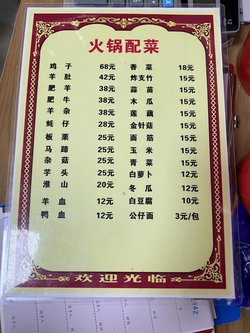 火锅配菜
鸡子 68元 香菜 18元
羊肚 42元 炸支竹 15元
肥羊 38元 蒜苗 15元
肥牛 38元 木瓜 15元
羊杂 38元 莲藕 15元
蚝仔 28元 金针菇 15元
板栗 25元 面筋 15元
马蹄 25元 玉米 15元
杂菇 25元 青菜 15元
芋头 25元 白萝卜 12元
淮山 20元 冬瓜 12元
羊血 12元 白豆腐 10元
鸭血 12元 公仔面 3元/包
欢迎光临